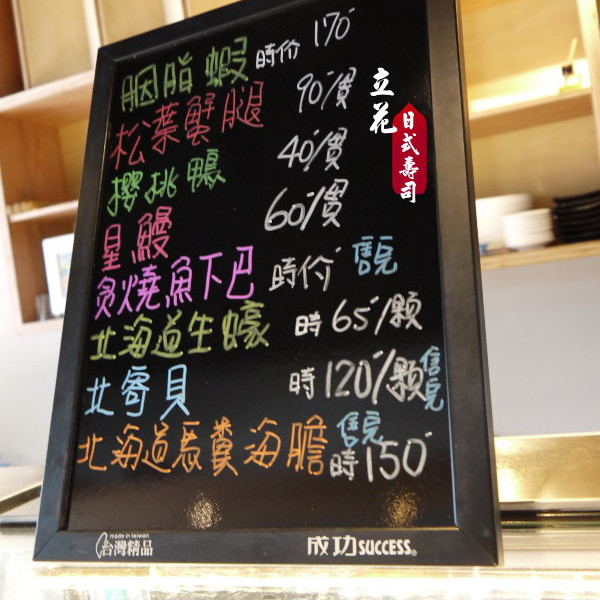 胭脂蝦 時价 170
松葉蟹腿 90/貫
櫻桃鴨 40/貫
星鰻 60/貫
炙燒魚下巴 時价 售完
北海道生蠔 時 65/顆
北寄貝 時 120/顆 售完
北海道馬糞海膽 時 150 售完
立花
日式壽司
made in taiwan
台灣精品
成功 SUCCESS®